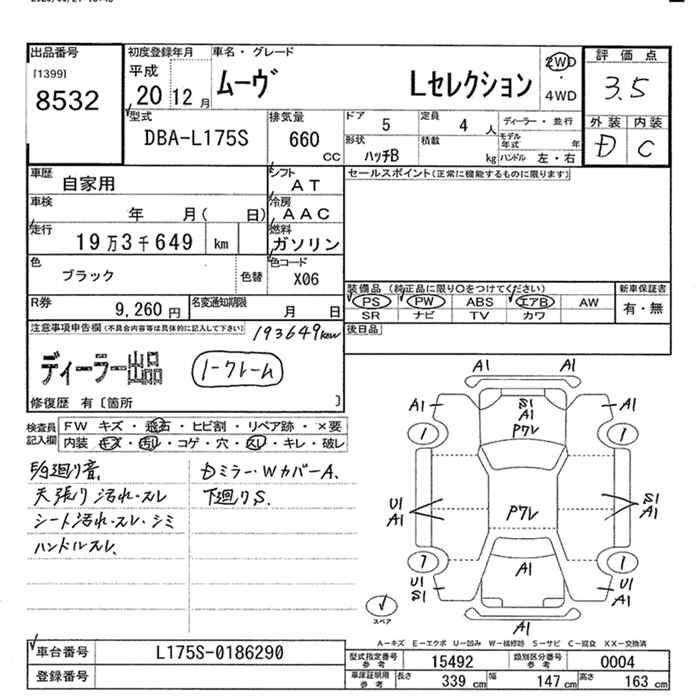 出品番号
[1399]
8532
初度登録年月
平成
20 12 月
車名・グレード
ムーヴ Lセレクション
2WD
・
4WD
評価点
3.5
外装 内装
D C
型式
DBA-L175S
排気量
660
CC
ドア
5
定員
4 人
ディーラー・並行
形状
ハッチB
積載
kg
モデル年式 年
ハンドル 左・右
車歴
自家用
シフト
AT
セールスポイント(正常に機能するものに限ります)
車検
年 月( 日)
冷房
AAC
走行
19万3千649 km
燃料
ガソリン
色
ブラック
色替
色コード
X06
装備品 (純正品に限り○をつけてください)
PS PW ABS エアB AW
SR ナビ TV カワ
新車保証書
有・無
R券
9,260 円
名変通知期限
月 日
後日品
注意事項申告欄(不具合内容等は具体的に記入して下さい)
193649km
ディーラー出品
ノークレーム
修復歴 有〔箇所 〕
検査員記入欄
FW キズ・飛石・ヒビ割・リペア跡・×要
内装 キズ・汚れ・コゲ・穴・スレ・キレ・破レ
天張り汚れ・スレ
シート汚れ・スレ・シミ
ハンドルスレ
Dミラー・WカバーA.
下廻りS.
A1 A1
A1 S1 A1
A1
Pアレ
1 1
U1 S1
A1 A1
Pアレ
7 1
A1
U1 U1
S1 A1
A1
スペア
A-キズ E-エクボ U-凹み W-補修跡 S-サビ C-腐食 XX-交換済
車台番号
L175S-0186290
登録番号
型式指定番号
参考
15492
類別区分番号
参考
0004
車庫証明用
参考
長さ 339 cm 幅 147 cm 高さ 163 cm